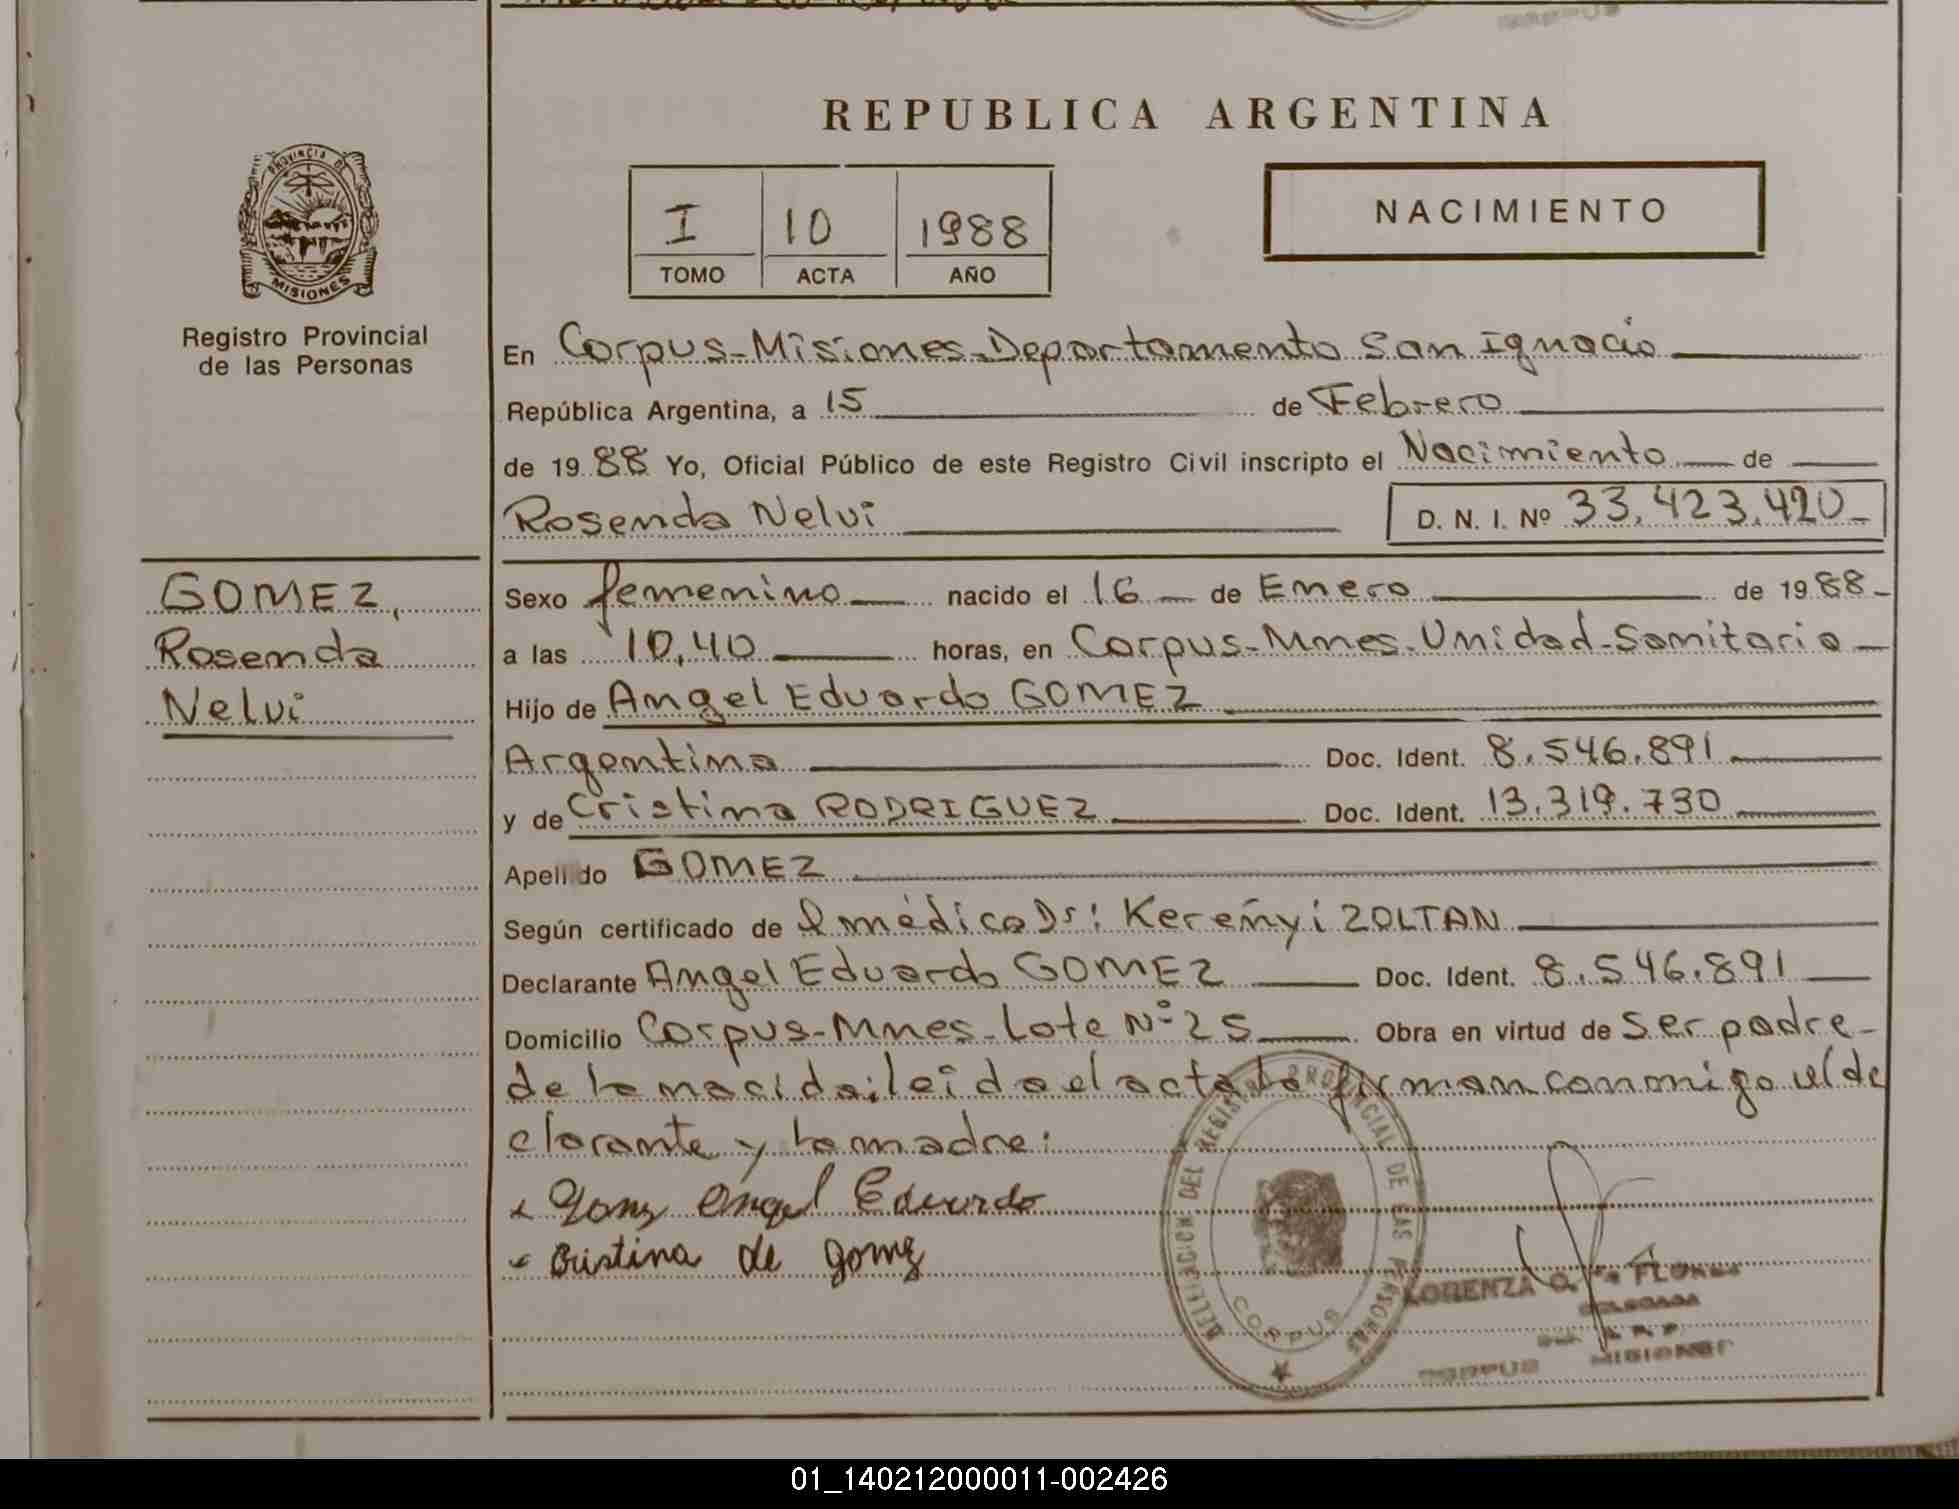 REPUBLICA ARGENTINA
PROVINCIA DE
MISIONES
Registro Provincial
de las Personas
I 10 1988
TOMO ACTA AÑO
NACIMIENTO
En Corpus-Misiones-Departamento San Ignacio
República Argentina, a 15 de Febrero
de 19 88 Yo, Oficial Público de este Registro Civil inscripto el Nacimiento de
Rosenda Nelvi D. N. I. Nº 33.423.420
GOMEZ,
Rosenda
Nelvi
Sexo femenino nacido el 16 de Enero de 19 88
a las 10,40 horas, en Corpus-Mnes-Unidad-Sanitaria
Hijo de Angel Eduardo GOMEZ
Argentina Doc. Ident. 8.546.891
y de Cristina RODRIGUEZ Doc. Ident. 13.319.730
Apellido GOMEZ
Según certificado de l médico Dr: Kereñyi ZOLTAN
Declarante Angel Eduardo GOMEZ Doc. Ident. 8.546.891
Domicilio Corpus-Mnes-Lote Nº 25 Obra en virtud de ser padre
de la nacida; leida el acta la firman conmigo el de
clarante y la madre:
x Gomz Angel Eduardo
x Cristina de Gomz
DELEGACION DEL REGISTRO PROVINCIAL DE LAS PERSONAS
CORPUS
LORENZA
DELEGADA
CORPUS MISIONES
01_140212000011-002426